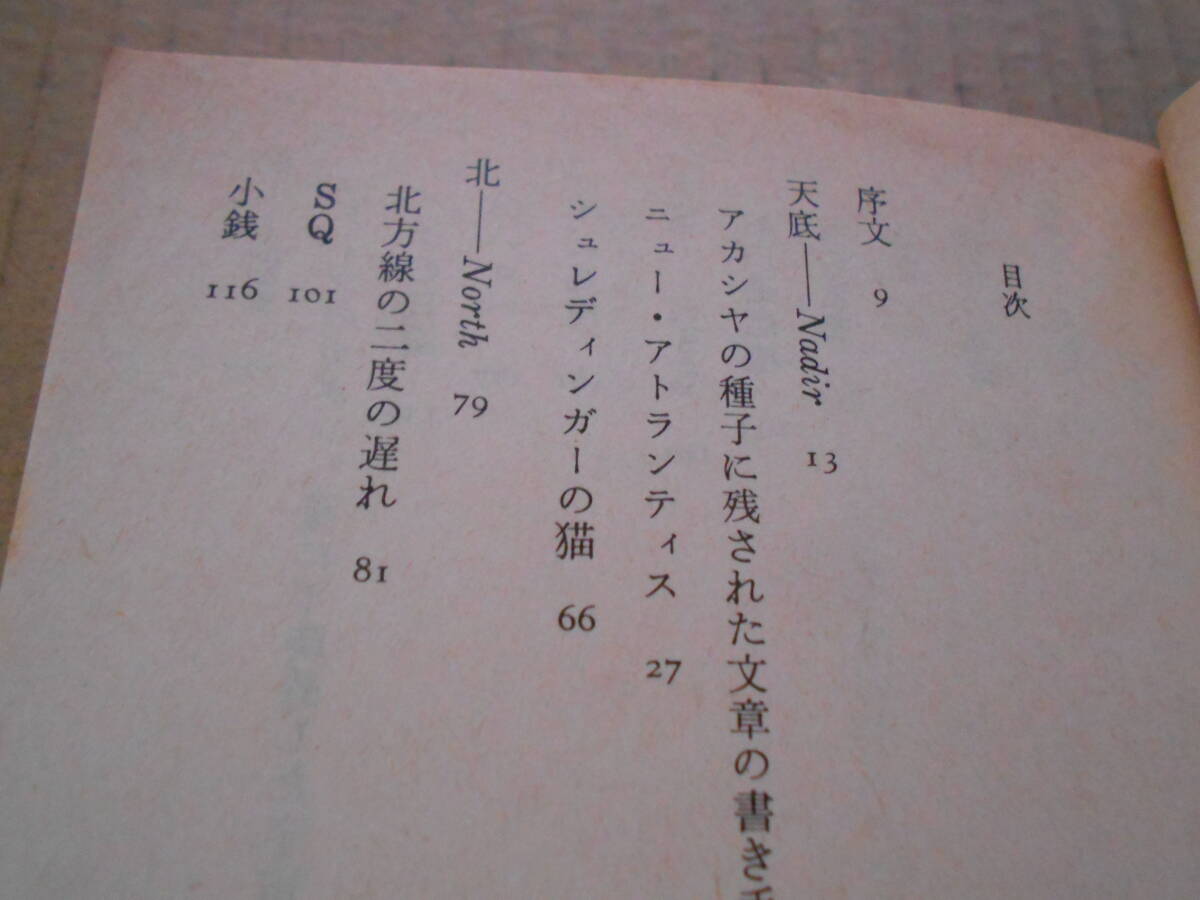 目次
序文 9
天底——Nadir 13
アカシヤの種子に残された文章の書き
ニュー・アトランティス 27
シュレディンガーの猫 66
北——North 79
北方線の二度の遅れ 81
SQ 101
小銭 116